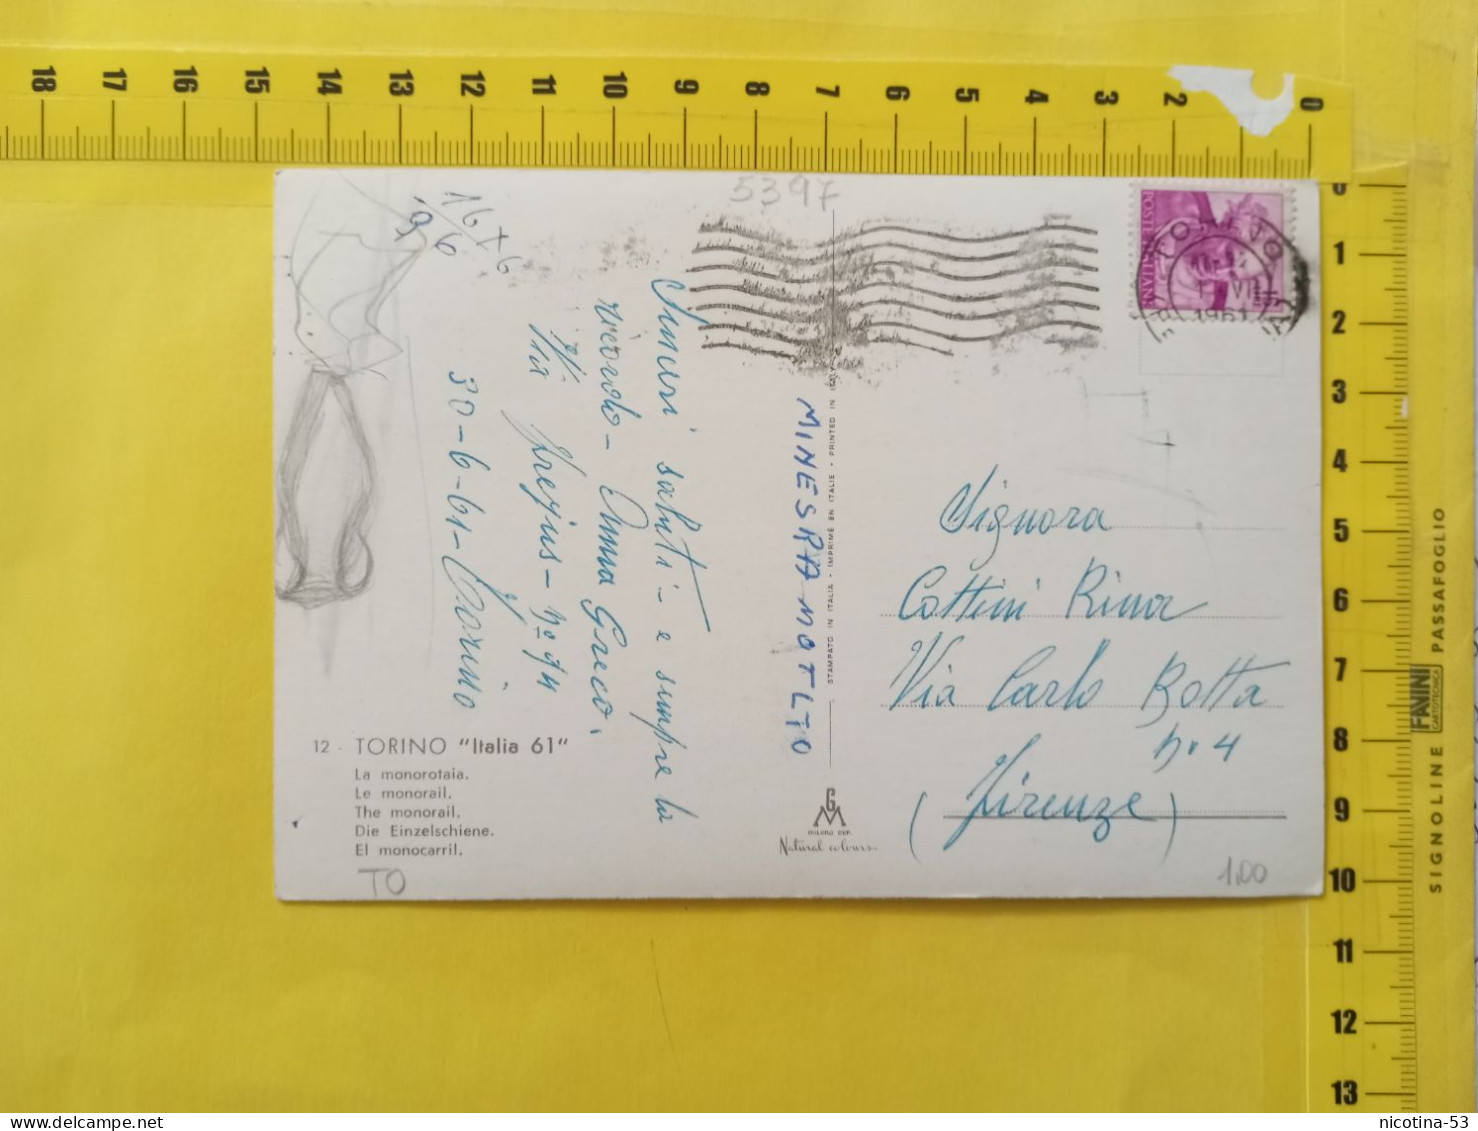 18 17 16 15 14 13 12 11 10 9 8 7 6 5 4 3 2 0
0
1
2
3
4
5
6
7
8
9
10
11
12
13
SIGNOLINE FANINI PASSAFOGLIO
CARTOTECNICA
5397
16 x 6
96
POSTE ITALIANE
TORINO
1961
Sinceri saluti - e sempre la
ricordo - Anna Greco.
Via Frejus - No 94
30-6-61-Torino
MINESRA MOTLTO
STAMPATO IN ITALIA - IMPRIMÉ EN ITALIE - PRINTED IN ITALY
Signora
Cottini Rina
Via Carlo Botta
n. 4
(Firenze)
12 - TORINO "Italia 61"
La monorotaia.
Le monorail.
The monorail.
Die Einzelschiene.
El monocarril.
GM
MILANO DEP.
Natural colours
TO
1,00
nicotina-53